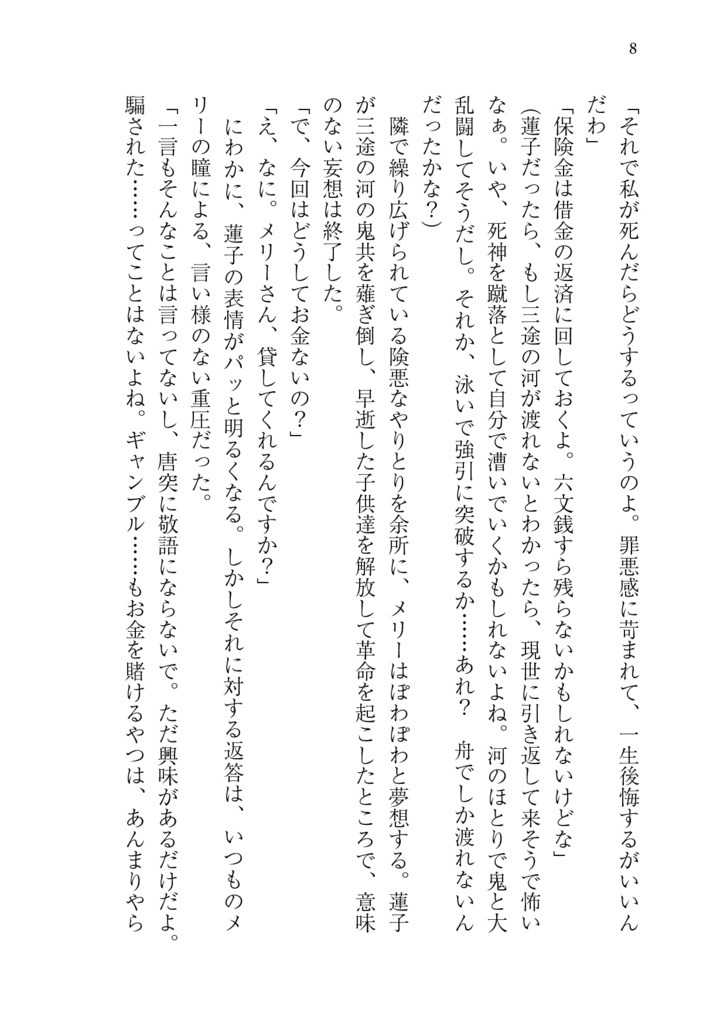 8
「それで私が死んだらどうするっていうのよ。罪悪感に苛まれて、一生後悔するがいいん
だわ」
「保険金は借金の返済に回しておくよ。六文銭すら残らないかもしれないけどな」
(蓮子だったら、もし三途の河が渡れないとわかったら、現世に引き返して来そうで怖い
なぁ。いや、死神を蹴落として自分で漕いでいくかもしれないよね。河のほとりで鬼と大
乱闘してそうだし。それか、泳いで強引に突破するか……あれ?　舟でしか渡れないん
だったかな?)
　隣で繰り広げられている険悪なやりとりを余所に、メリーはぽわぽわと夢想する。蓮子
が三途の河の鬼共を薙ぎ倒し、早逝した子供達を解放して革命を起こしたところで、意味
のない妄想は終了した。
「で、今回はどうしてお金ないの?」
「え、なに。メリーさん、貸してくれるんですか?」
　にわかに、蓮子の表情がパッと明るくなる。しかしそれに対する返答は、いつものメ
リーの瞳による、言い様のない重圧だった。
「一言もそんなことは言ってないし、唐突に敬語にならないで。ただ興味があるだけだよ。
騙された……ってことはないよね。ギャンブル……もお金を賭けるやつは、あんまりやら